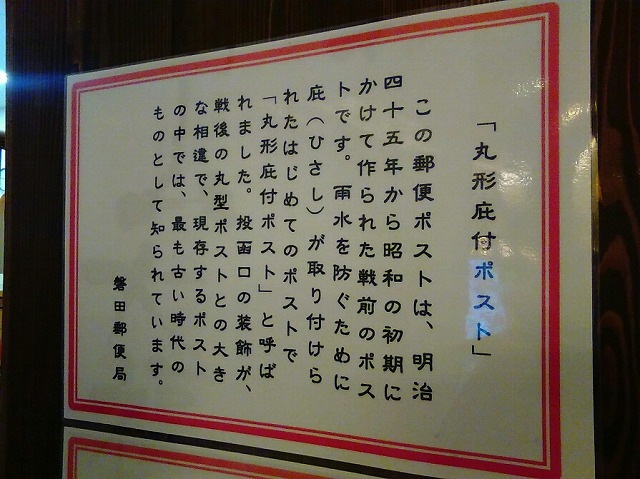 「丸形庇付ポスト」
この郵便ポストは、明治
四十五年から昭和の初期に
かけて作られた戦前のポス
トです。雨水を防ぐために
庇（ひさし）が取り付けら
れたはじめてのポストで
「丸形庇付ポスト」と呼ば
れました。投函口の装飾が、
戦後の丸型ポストとの大き
な相違で、現存するポスト
の中では、最も古い時代の
ものとして知られています。
磐田郵便局